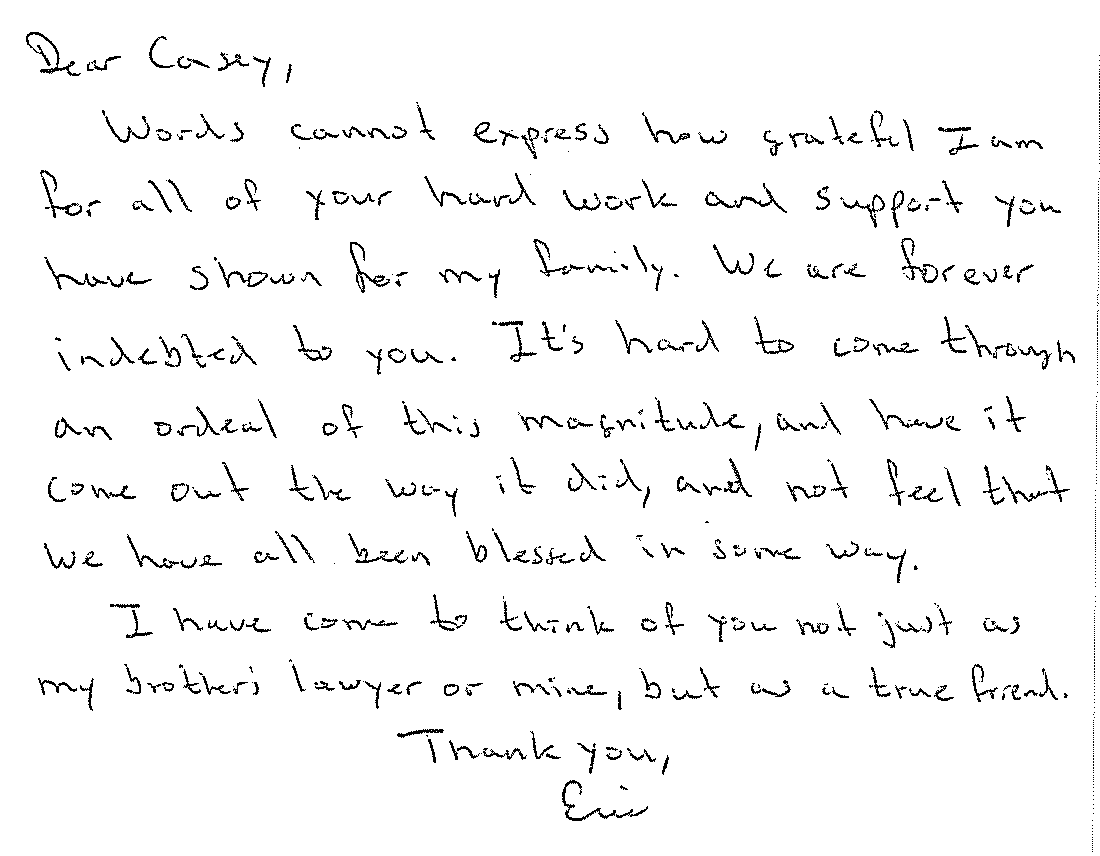 Dear Casey,
Words cannot express how grateful I am
for all of your hard work and support you
have shown for my family. We are forever
indebted to you. It's hard to come through
an ordeal of this magnitude, and have it
come out the way it did, and not feel that
we have all been blessed in some way.
I have come to think of you not just as
my brother's lawyer or mine, but as a true friend.
Thank you,
Eric